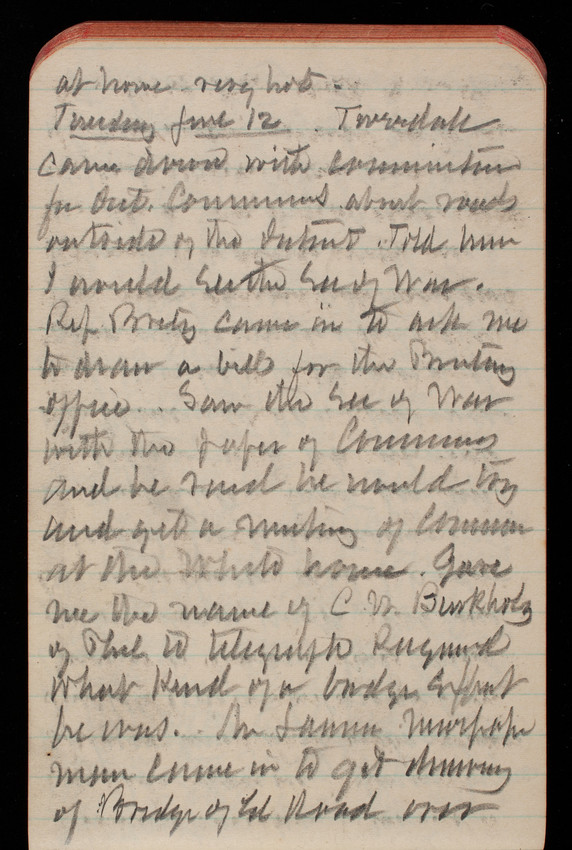 at home very hot.
Tuesday June 12. Truesdale
came down with communication
for Dist. Commrs about roads
outside of the District. Told him
I would see the Sec of War.
Rep. came in to ask me
to draw a bill for the Printing
office.. Saw the Sec of War
with the paper of Commrs
and he said he would try
and get a meeting of Comm
at the White house. Gave
me the name of C. W. Buckholz
of Phil to telegraph
What kind of a bridge expert
he was. The newspaper
man came in to get drawing
of Bridge of Road over